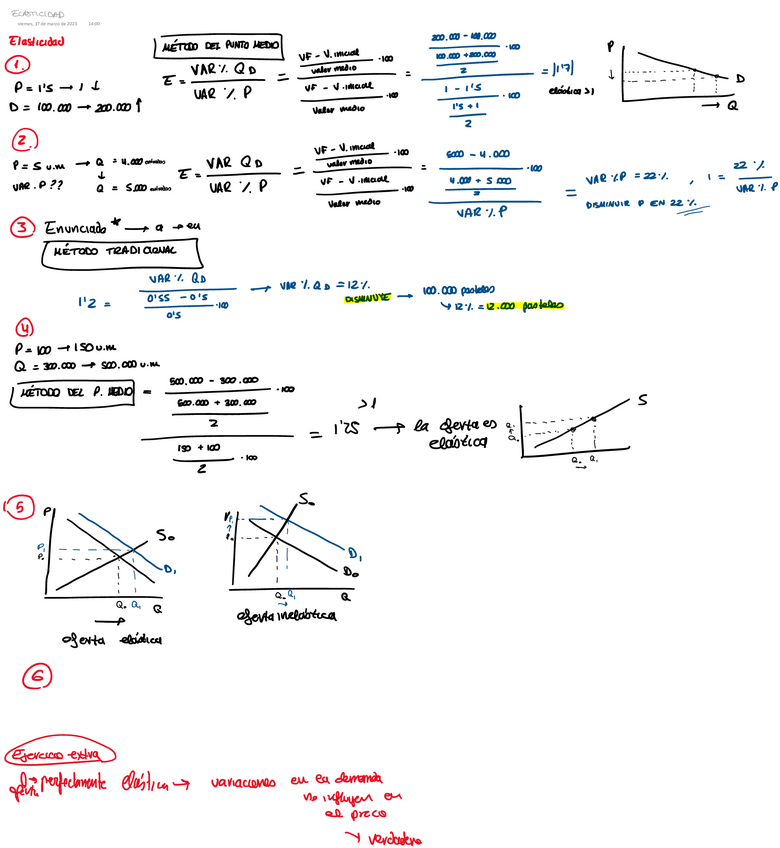 ELASTICIDAD
viernes, 17 de marzo de 2023 14:00
Elasticidad
1.
MÉTODO DEL PUNTO MEDIO
P = 1'5 → 1 ↓
D = 100.000 → 200.000 ↑
E = VAR % QD / VAR % P = (VF - V.inicial / valor medio · 100) / (VF - V.inicial / valor medio · 100) = (200.000 - 100.000 / (100.000 + 200.000 / 2) · 100) / (1 - 1'5 / (1'5 + 1 / 2) · 100) = |1'7|
elástica >1
P ↓
D
→ Q
2.
P = 5 u.m → Q = 4.000
↓
VAR. P ?? Q = 5.000
E = VAR QD / VAR % P = (VF - V.inicial / valor medio · 100) / (VF - V.inicial / valor medio · 100) = (5000 - 4.000 / (4.000 + 5.000 / 2) · 100) / VAR % P
= VAR % P = 22% , 1 = 22 % / VAR % P
DISMINUIR P EN 22 %
3 Enunciado * → a → eu
MÉTODO TRADICIONAL
1'2 = VAR % QD / (0'55 - 0'5 / 0'5 · 100) → VAR % QD = 12%
DISMINUYE → 100.000 pasteles
↳ 12% = 12.000 pasteles
4
P = 100 → 150 u.m.
Q = 300.000 → 500.000 u.m
MÉTODO DEL P. MEDIO = (500.000 - 300.000 / (500.000 + 300.000 / 2) · 100) / (150 + 100 / 2 · 100) = 1'25 → la oferta es
>1
elástica
S
P₁
P₀
Q₀ Q₁
→
5
P
S₀
P₁
P₀
D₁
Q₀ Q₁ Q
→
oferta elástica
S₀
P₁
P₀
D₁
D₀
Q₀ Q₁ Q
→
oferta inelástica
6
Ejercicio extra
oferta → perfectamente elástica → variaciones en la demanda
no influyen en
el precio
↳ verdadero